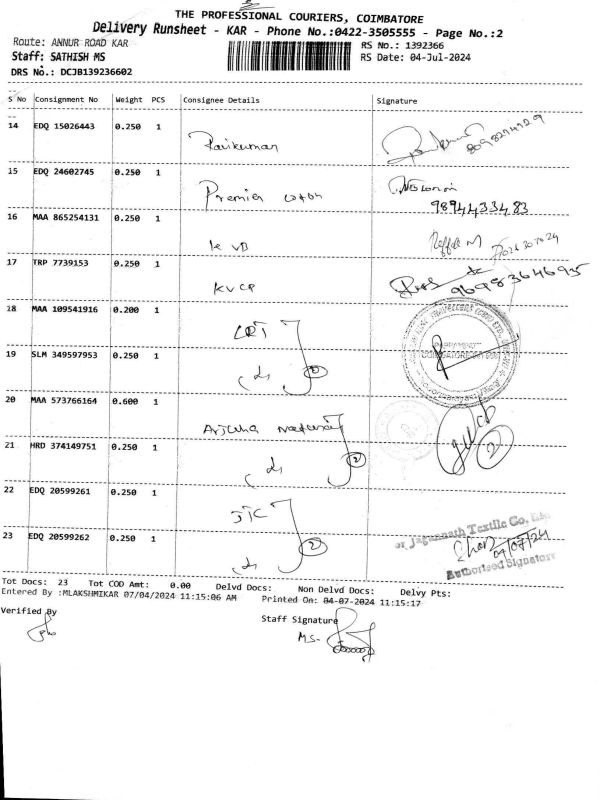 THE PROFESSIONAL COURIERS, COIMBATORE
Delivery Runsheet - KAR - Phone No.:0422-3505555 - Page No.:2
Route: ANNUR ROAD KAR
RS No.: 1392366
Staff: SATHISH MS
RS Date: 04-Jul-2024
DRS No.: DCJB139236602
S No Consignment No Weight PCS Consignee Details Signature
14 EDQ 15026443 0.250 1 Ravikumar
15 EDQ 24602745 0.250 1 Premier cotton
9894433483
16 MAA 865254131 0.250 1 KVB
17 TRP 7739153 0.250 1 KVCP
9698364695
18 MAA 109541916 0.200 1 CRI
19 SLM 349597953 0.250 1 do 2
20 MAA 573766164 0.600 1 Arjuna Natural
21 HRD 374149751 0.250 1 do 2
2
22 EDQ 20599261 0.250 1 JTC
23 EDQ 20599262 0.250 1 do 2
or Jagannath Textile Co.
04/07/24
Authorised Signatory
Tot Docs: 23 Tot COD Amt: 0.00 Delvd Docs: Non Delvd Docs: Delvy Pts:
Entered By :MLAKSHMIKAR 07/04/2024 11:15:06 AM Printed On: 04-07-2024 11:15:17
Verified By
Staff Signature
MS.